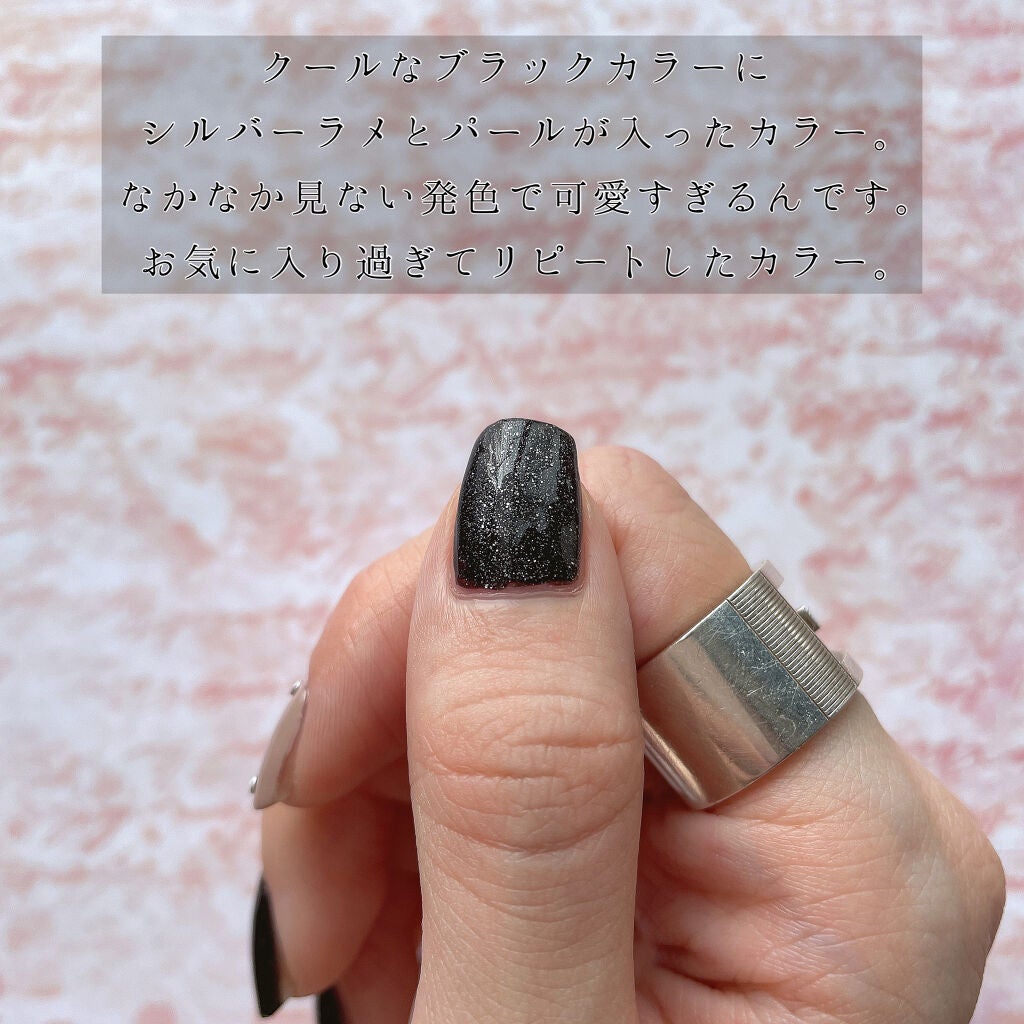 クールなブラックカラーに
シルバーラメとパールが入ったカラー。
なかなか見ない発色で可愛すぎるんです。
お気に入り過ぎてリピートしたカラー。